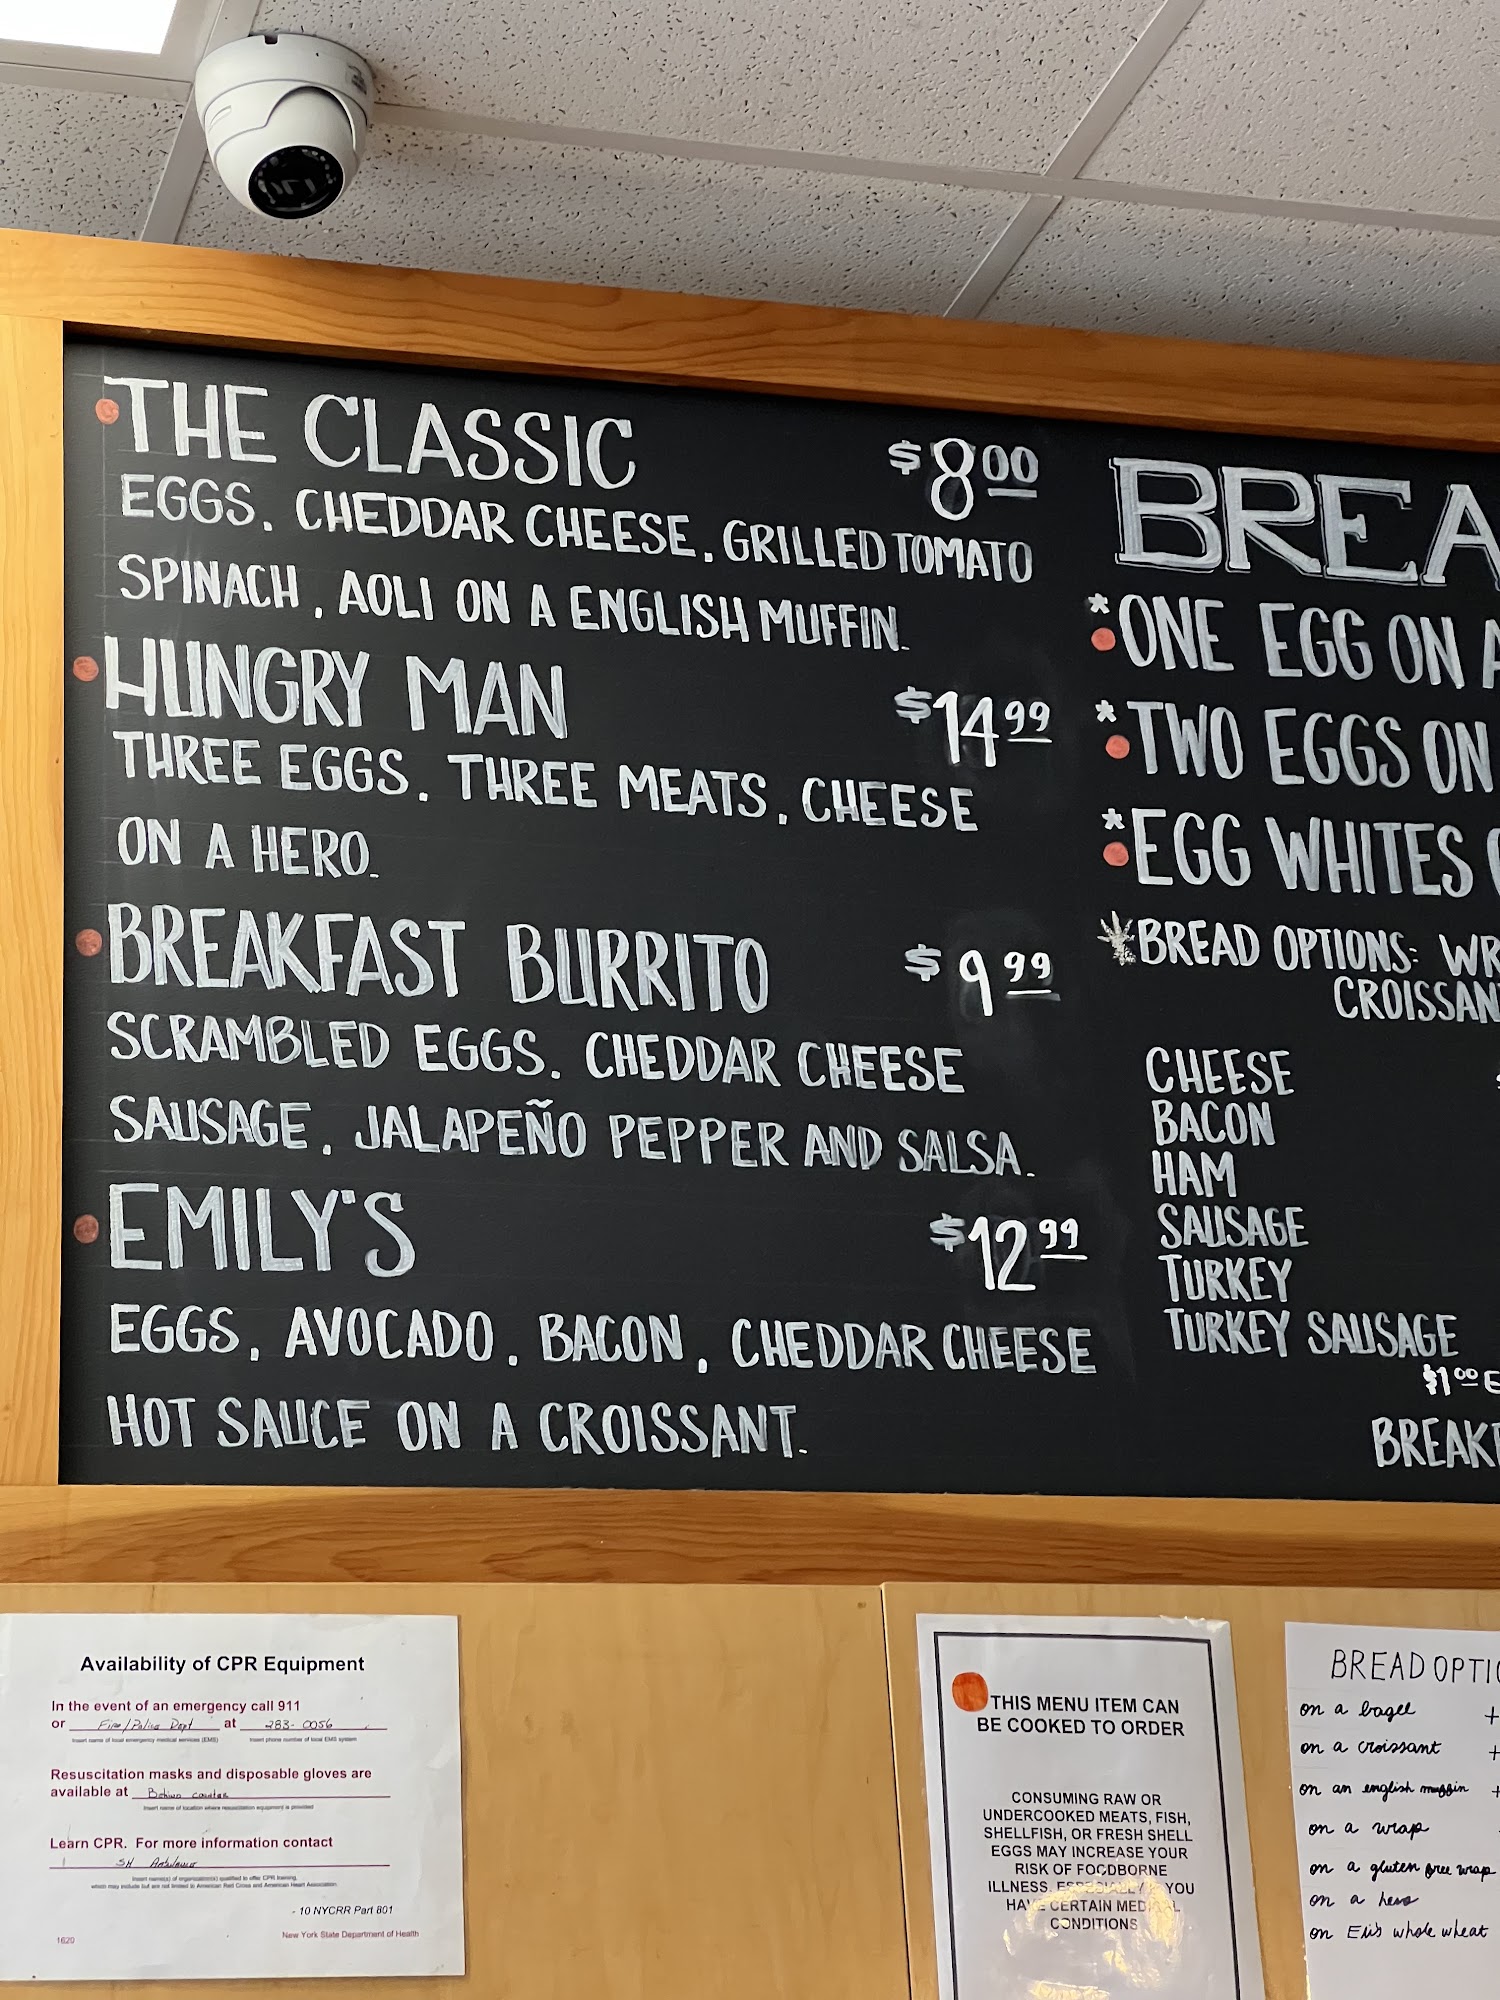 THE CLASSIC $8.00
EGGS, CHEDDAR CHEESE, GRILLED TOMATO
SPINACH, AOLI ON A ENGLISH MUFFIN.
HUNGRY MAN $14.99
THREE EGGS, THREE MEATS, CHEESE
ON A HERO.
BREAKFAST BURRITO $9.99
SCRAMBLED EGGS, CHEDDAR CHEESE
SAUSAGE, JALAPEÑO PEPPER AND SALSA.
EMILY'S $12.99
EGGS, AVOCADO, BACON, CHEDDAR CHEESE
HOT SAUCE ON A CROISSANT.
BREA
*ONE EGG ON A
*TWO EGGS ON
*EGG WHITES
*BREAD OPTIONS: WR
CROISSAN
CHEESE
BACON
HAM
SAUSAGE
TURKEY
TURKEY SAUSAGE
$1.00 E
BREAK
Availability of CPR Equipment
In the event of an emergency call 911
or Fire/Police Dept at 283-0056
Insert name of local emergency medical services (EMS) Insert phone number of local EMS system
Resuscitation masks and disposable gloves are
available at Behind counter
Insert name of location where resuscitation equipment is provided
Learn CPR. For more information contact
SH Ambulance
Insert name(s) of organization(s) qualified to offer CPR training,
which may include but are not limited to American Red Cross and American Heart Association.
- 10 NYCRR Part 801
1620 New York State Department of Health
THIS MENU ITEM CAN
BE COOKED TO ORDER
CONSUMING RAW OR
UNDERCOOKED MEATS, FISH,
SHELLFISH, OR FRESH SHELL
EGGS MAY INCREASE YOUR
RISK OF FOODBORNE
ILLNESS, ESPECIALLY IF YOU
HAVE CERTAIN MEDICAL
CONDITIONS
BREAD OPTIO
on a bagel +
on a croissant +
on an english muffin +
on a wrap
on a gluten free wrap
on a hero
on Eli's whole wheat